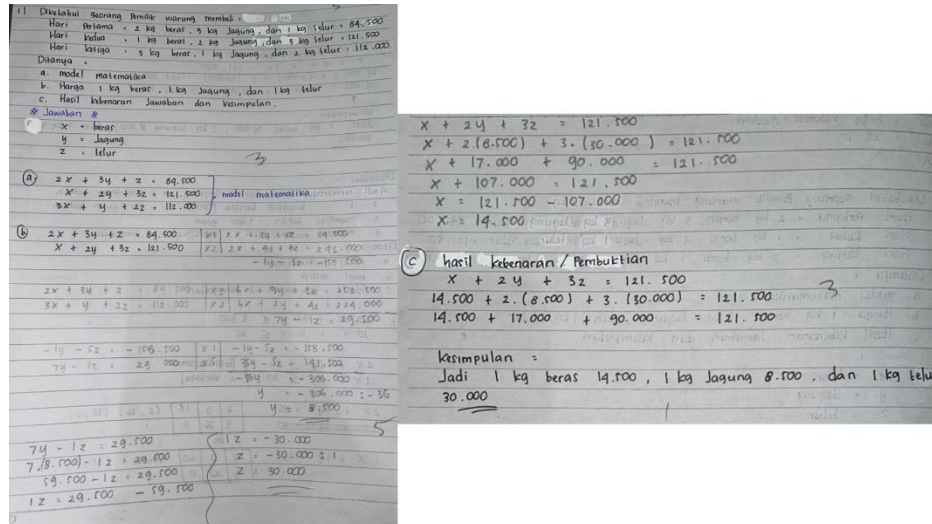 1) Diketahui seorang Pemilik warung membeli :
Hari Pertama : 2 kg beras, 3 kg Jagung, dan 1 kg telur = 84.500
Hari kedua : 1 kg beras, 2 kg Jagung, dan 3 kg telur = 121.500
Hari ketiga : 3 kg beras, 1 kg Jagung, dan 2 kg telur = 112.000
Ditanya :
a. model matematika
b. Harga 1 kg beras, 1 kg Jagung, dan 1 kg telur
c. Hasil kebenaran Jawaban dan kesimpulan.
* Jawaban *
x = beras
y = Jagung
z = telur
3
(a) 2x + 3y + z = 84.500
x + 2y + 3z = 121.500 model matematika
3x + y + 2z = 112.000
(b) 2x + 3y + z = 84.500 |x1| 2x + 3y + z = 84.500
x + 2y + 3z = 121.500 |x2| 2x + 4y + 6z = 243.000
-1y - 5z = -158.500
2x + 3y + z = 84.500 |x3| 6x + 9y + 3z = 253.500
3x + y + 2z = 112.000 |x2| 6x + 2y + 4z = 224.000
7y - 1z = 29.500
-1y - 5z = -158.500 |x1| -1y - 5z = -158.500
7y - 1z = 29.500 |x5| 35y - 5z = 147.500
-36y = -306.000
y = -306.000 : -36
y = 8.500
5
7y - 1z = 29.500
7.(8.500) - 1z = 29.500
59.500 - 1z = 29.500
1z = 29.500 - 59.500
1z = -30.000
z = -30.000 : 1
z = 30.000
x + 2y + 3z = 121.500
x + 2.(8.500) + 3.(30.000) = 121.500
x + 17.000 + 90.000 = 121.500
x + 107.000 = 121.500
x = 121.500 - 107.000
x = 14.500
(c) hasil kebenaran / Pembuktian
x + 2y + 3z = 121.500
14.500 + 2.(8.500) + 3.(30.000) = 121.500
14.500 + 17.000 + 90.000 = 121.500
3
Kesimpulan :
Jadi 1 kg beras 14.500, 1 kg Jagung 8.500, dan 1 kg telu
30.000